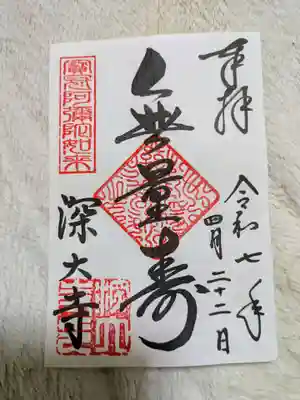 奉拝
令和七年
四月二十二日
無量寿
寶冠阿彌陀如来
深大寺